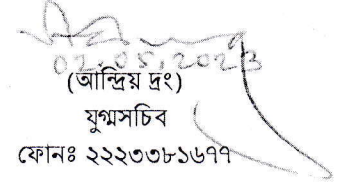 02.05.2023
(আন্দ্রিয় দ্রং)
যুগ্মসচিব
ফোনঃ ২২২৩৩৮১৬৭৭